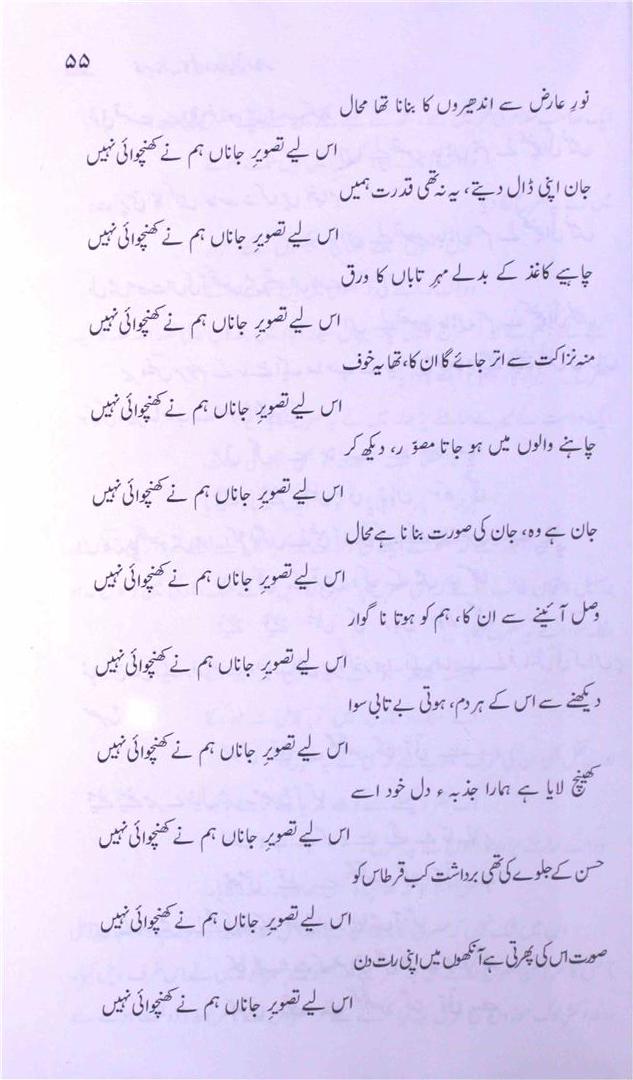 ۵۵
نورِ عارض سے اندھیروں کا بنانا تھا محال
اس لیے تصویرِ جاناں ہم نے کھنچوائی نہیں
جان اپنی ڈال دیتے، یہ نہ تھی قدرت ہمیں
اس لیے تصویرِ جاناں ہم نے کھنچوائی نہیں
چاہیے کاغذ کے بدلے مہرِ تاباں کا ورق
اس لیے تصویرِ جاناں ہم نے کھنچوائی نہیں
منہ نزاکت سے اتر جائے گا ان کا، تھا یہ خوف
اس لیے تصویرِ جاناں ہم نے کھنچوائی نہیں
چاہنے والوں میں ہو جاتا مصوّر، دیکھ کر
اس لیے تصویرِ جاناں ہم نے کھنچوائی نہیں
جان ہے وہ، جان کی صورت بنانا ہے محال
اس لیے تصویرِ جاناں ہم نے کھنچوائی نہیں
وصل آئینے سے ان کا، ہم کو ہوتا ناگوار
اس لیے تصویرِ جاناں ہم نے کھنچوائی نہیں
دیکھنے سے اس کے ہر دم، ہوتی بے تابی سوا
اس لیے تصویرِ جاناں ہم نے کھنچوائی نہیں
کھینچ لایا ہے ہمارا جذبہء دل خود اسے
اس لیے تصویرِ جاناں ہم نے کھنچوائی نہیں
حسن کے جلوے کی تھی برداشت کب قرطاس کو
اس لیے تصویرِ جاناں ہم نے کھنچوائی نہیں
صورت اس کی پھرتی ہے آنکھوں میں اپنی رات دن
اس لیے تصویرِ جاناں ہم نے کھنچوائی نہیں